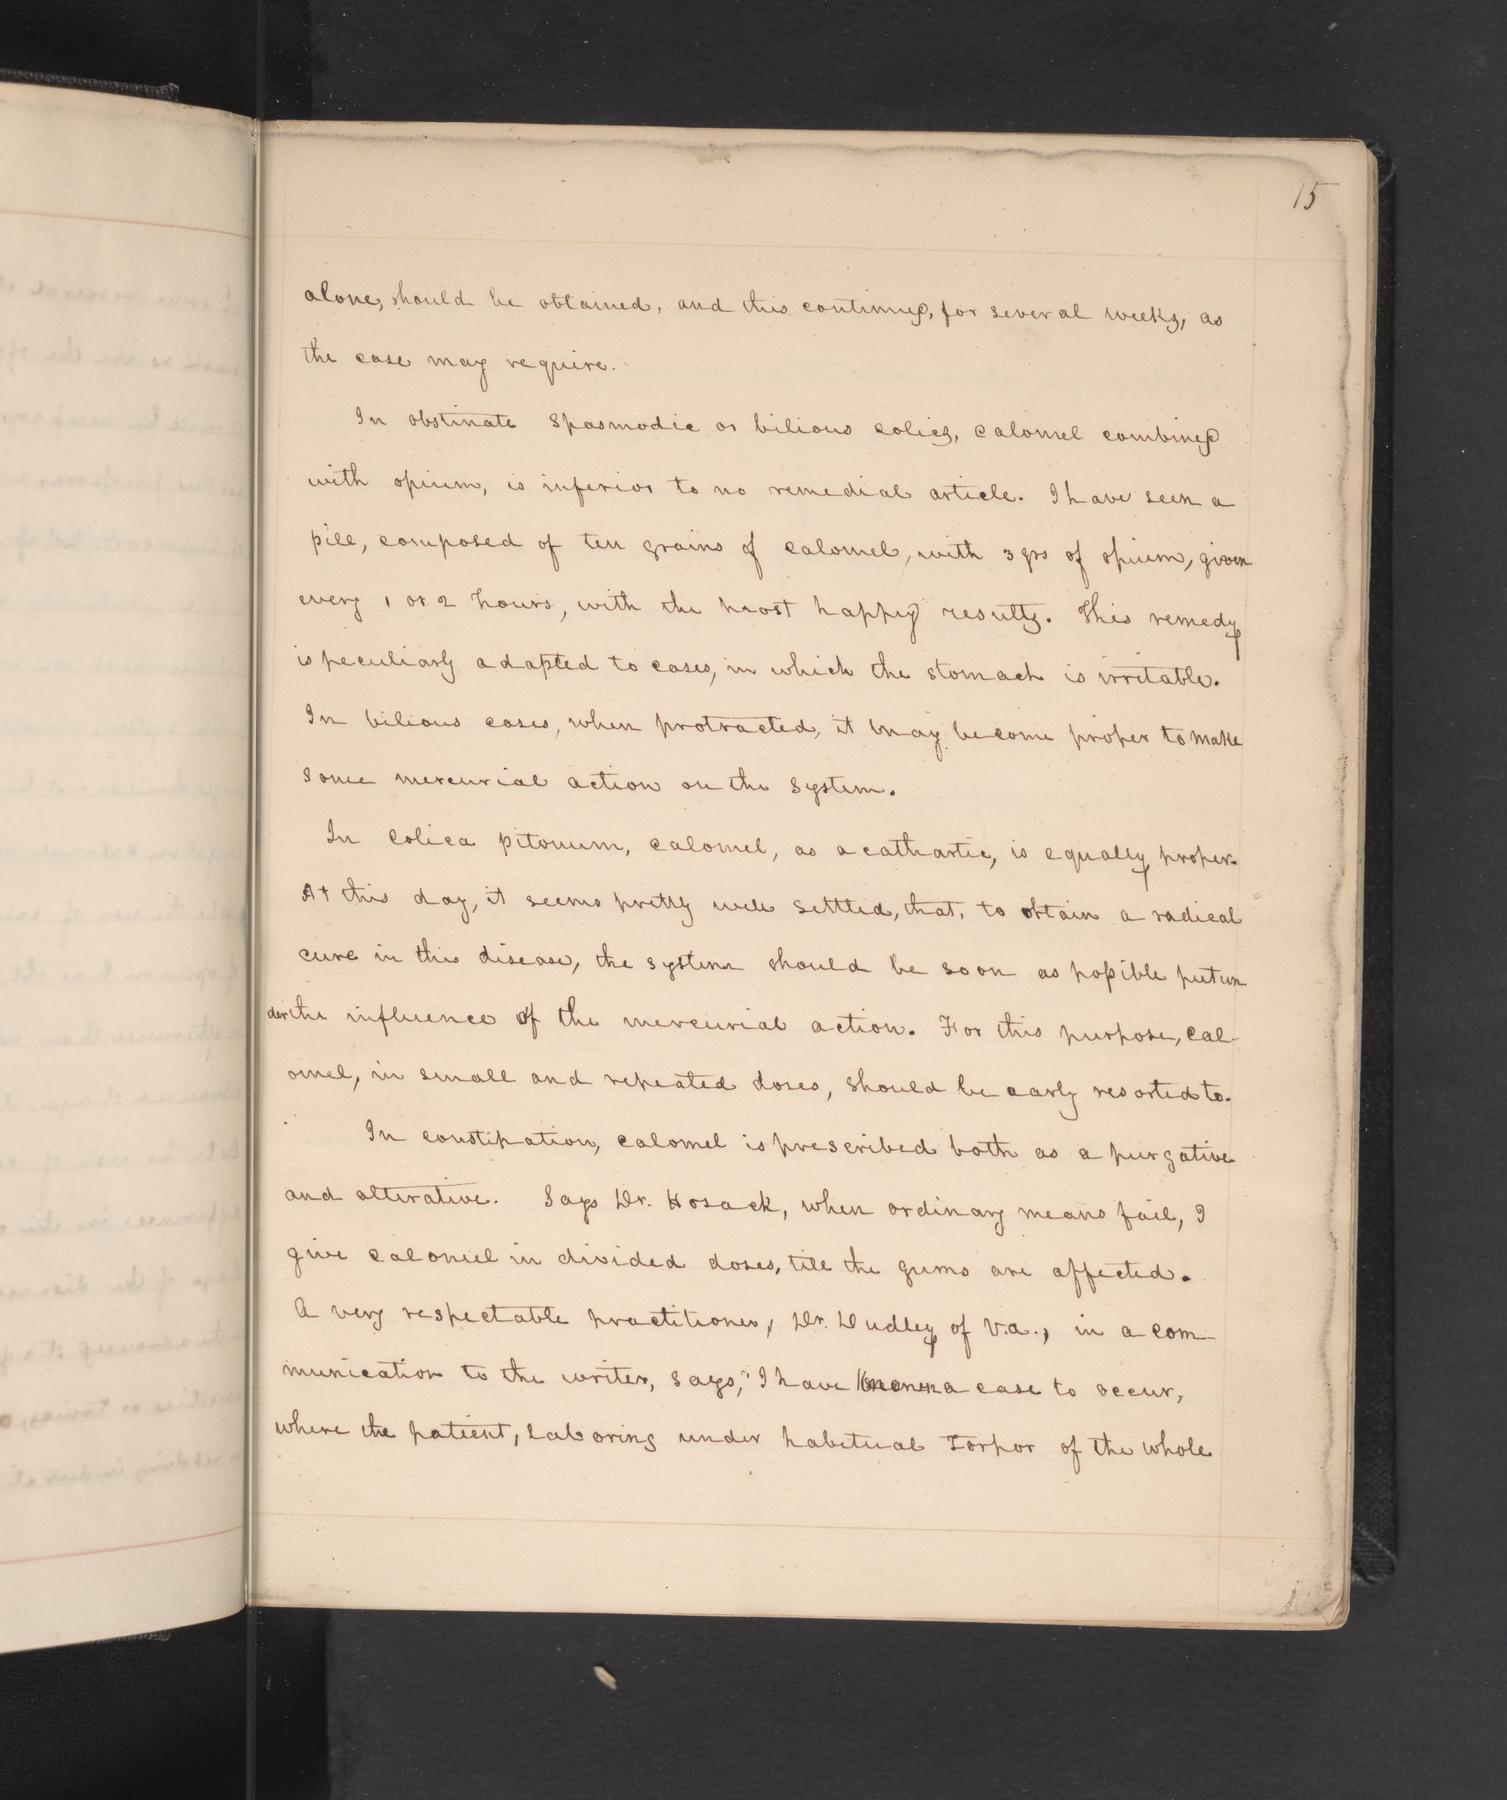 15
alone, should be obtained, and this continued, for several weeks, as
the case may require.
In obstinate spasmodic or bilious colics, calomel combined
with opium, is inferior to no remedial article. I have seen a
pill, composed of ten grains of calomel, with 3 grs of opium, given
every 1 or 2 hours, with the most happy results. This remedy
is peculiarly adapted to cases, in which the stomach is irritable.
In bilious cases, when protracted, it may become proper to make
some mercurial action on the system.
In colica pitonum, calomel, as a cathartic, is equally proper.
At this day, it seems pretty well settled, that, to obtain a radical
cure in this disease, the system should be soon as possible put un
der the influence of the mercurial action. For this purpose, cal-
omel, in small and repeated doses, should be early resorted to.
In constipation, calomel is prescribed both as a purgative
and alterative. Says Dr. Hosack, when ordinary means fail, I
give calomel in divided doses, till the gums are affected.
A very respectable practitioner, Dr. Dudley of V.a., in a com-
munication to the writer, says, "I have a case to occur,
where the patient, laboring under habitual torpor of the whole